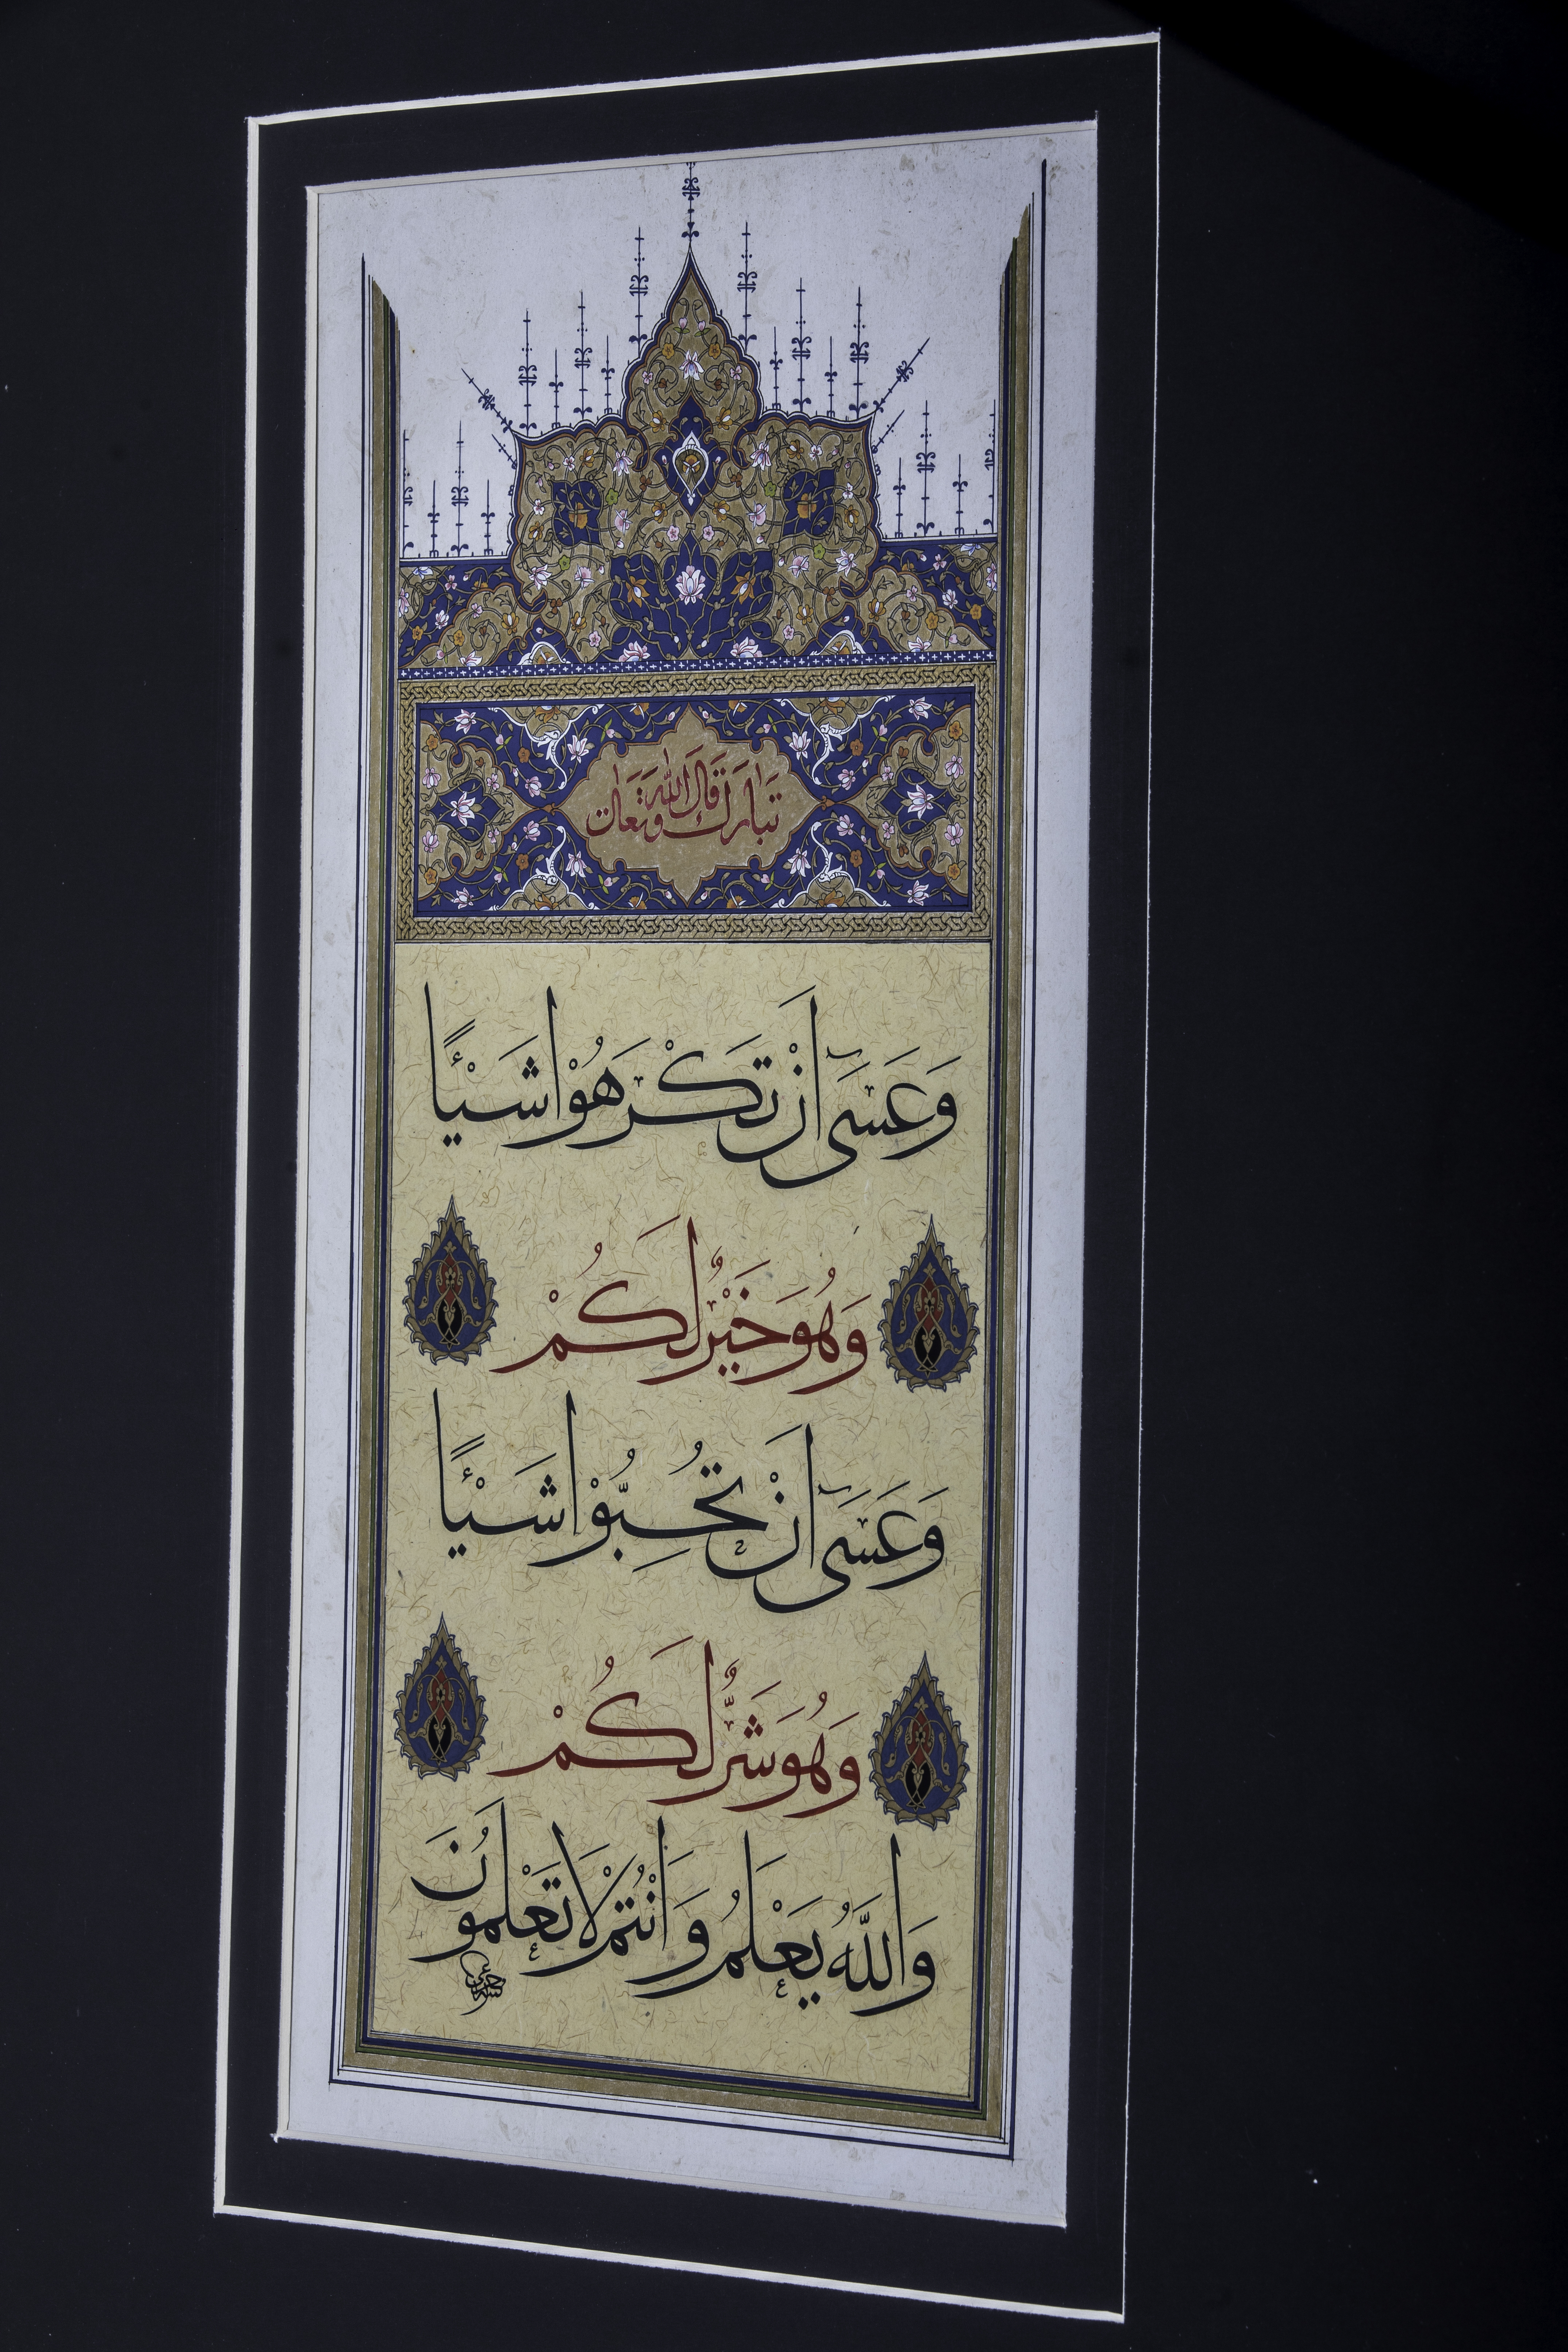 قال الله تبارك وتعالى
وَعَسَىٓ اَنْ تَكْرَهُوْا شَيْئًا
وَهُوَ خَيْرٌ لَكُمْ
وَعَسَىٓ اَنْ تُحِبُّوْا شَيْئًا
وَهُوَ شَرٌّ لَكُمْ
وَاللّٰهُ يَعْلَمُ وَاَنْتُمْ لَا تَعْلَمُونَ